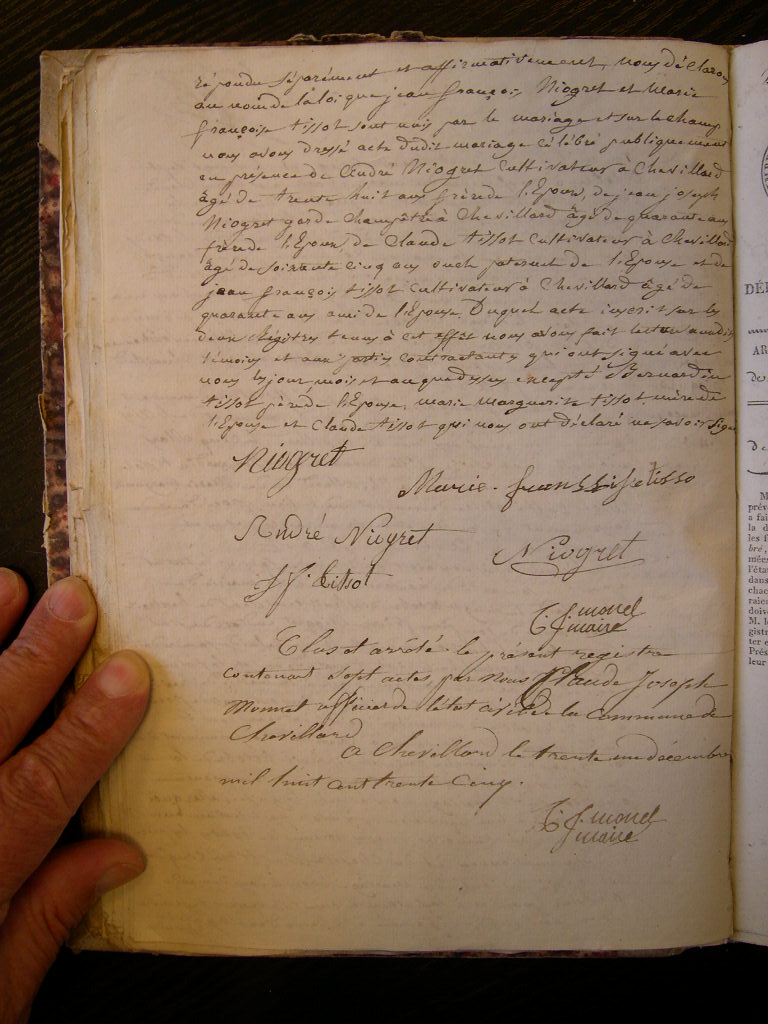 répondu séparément et affirmativement, nous déclarons
au nom de la loi que jean françois Niogret et Marie
françoise tissot sont unis par le mariage et sur le champ
nous avons dressé acte dudit mariage célébré publiquement
en présence de André Niogret Cultivateur à Chevillard
âgé de trente huit ans frère de l'Epoux, de jean joseph
Niogret garde champêtre à Chevillard âgé de quarante ans
frère de l'Epoux, de Claude tissot Cultivateur à Chevillard
âgé de soixante cinq ans oncle paternel de l'Epouse et de
jean françois tissot Cultivateur à Chevillard âgé de
quarante ans ami de l'Epouse. Duquel acte inscrit sur les
deux Régistres tenus à cet effet nous avons fait lecture auxdits
témoins et aux parties contractantes qui ont signé avec
nous les jour, mois et an que dessus excepté Bernardin
tissot père de l'Epouse, marie marguerite tissot mère de
l'Epouse et Claude tissot qui nous ont déclaré ne savoir signer
Niogret
Marie-franssisse tisso
André Niogret
Niogret
J f. tissot
C. J. monel
maire
Clos et arrêté le présent registre
contenant sept actes, par nous Claude Joseph
Monnet officier de l'état civil de la Commune de
Chevillard
A Chevillard le trente un décembre
mil huit cent trente cinq.
C. J. monel
maire
DÉ
AR
de
M
prév
a fai
la d
les f
bré,
mées
l'éta
dans
chac
raien
doive
M. le
gistr
ter e
Prés
leur